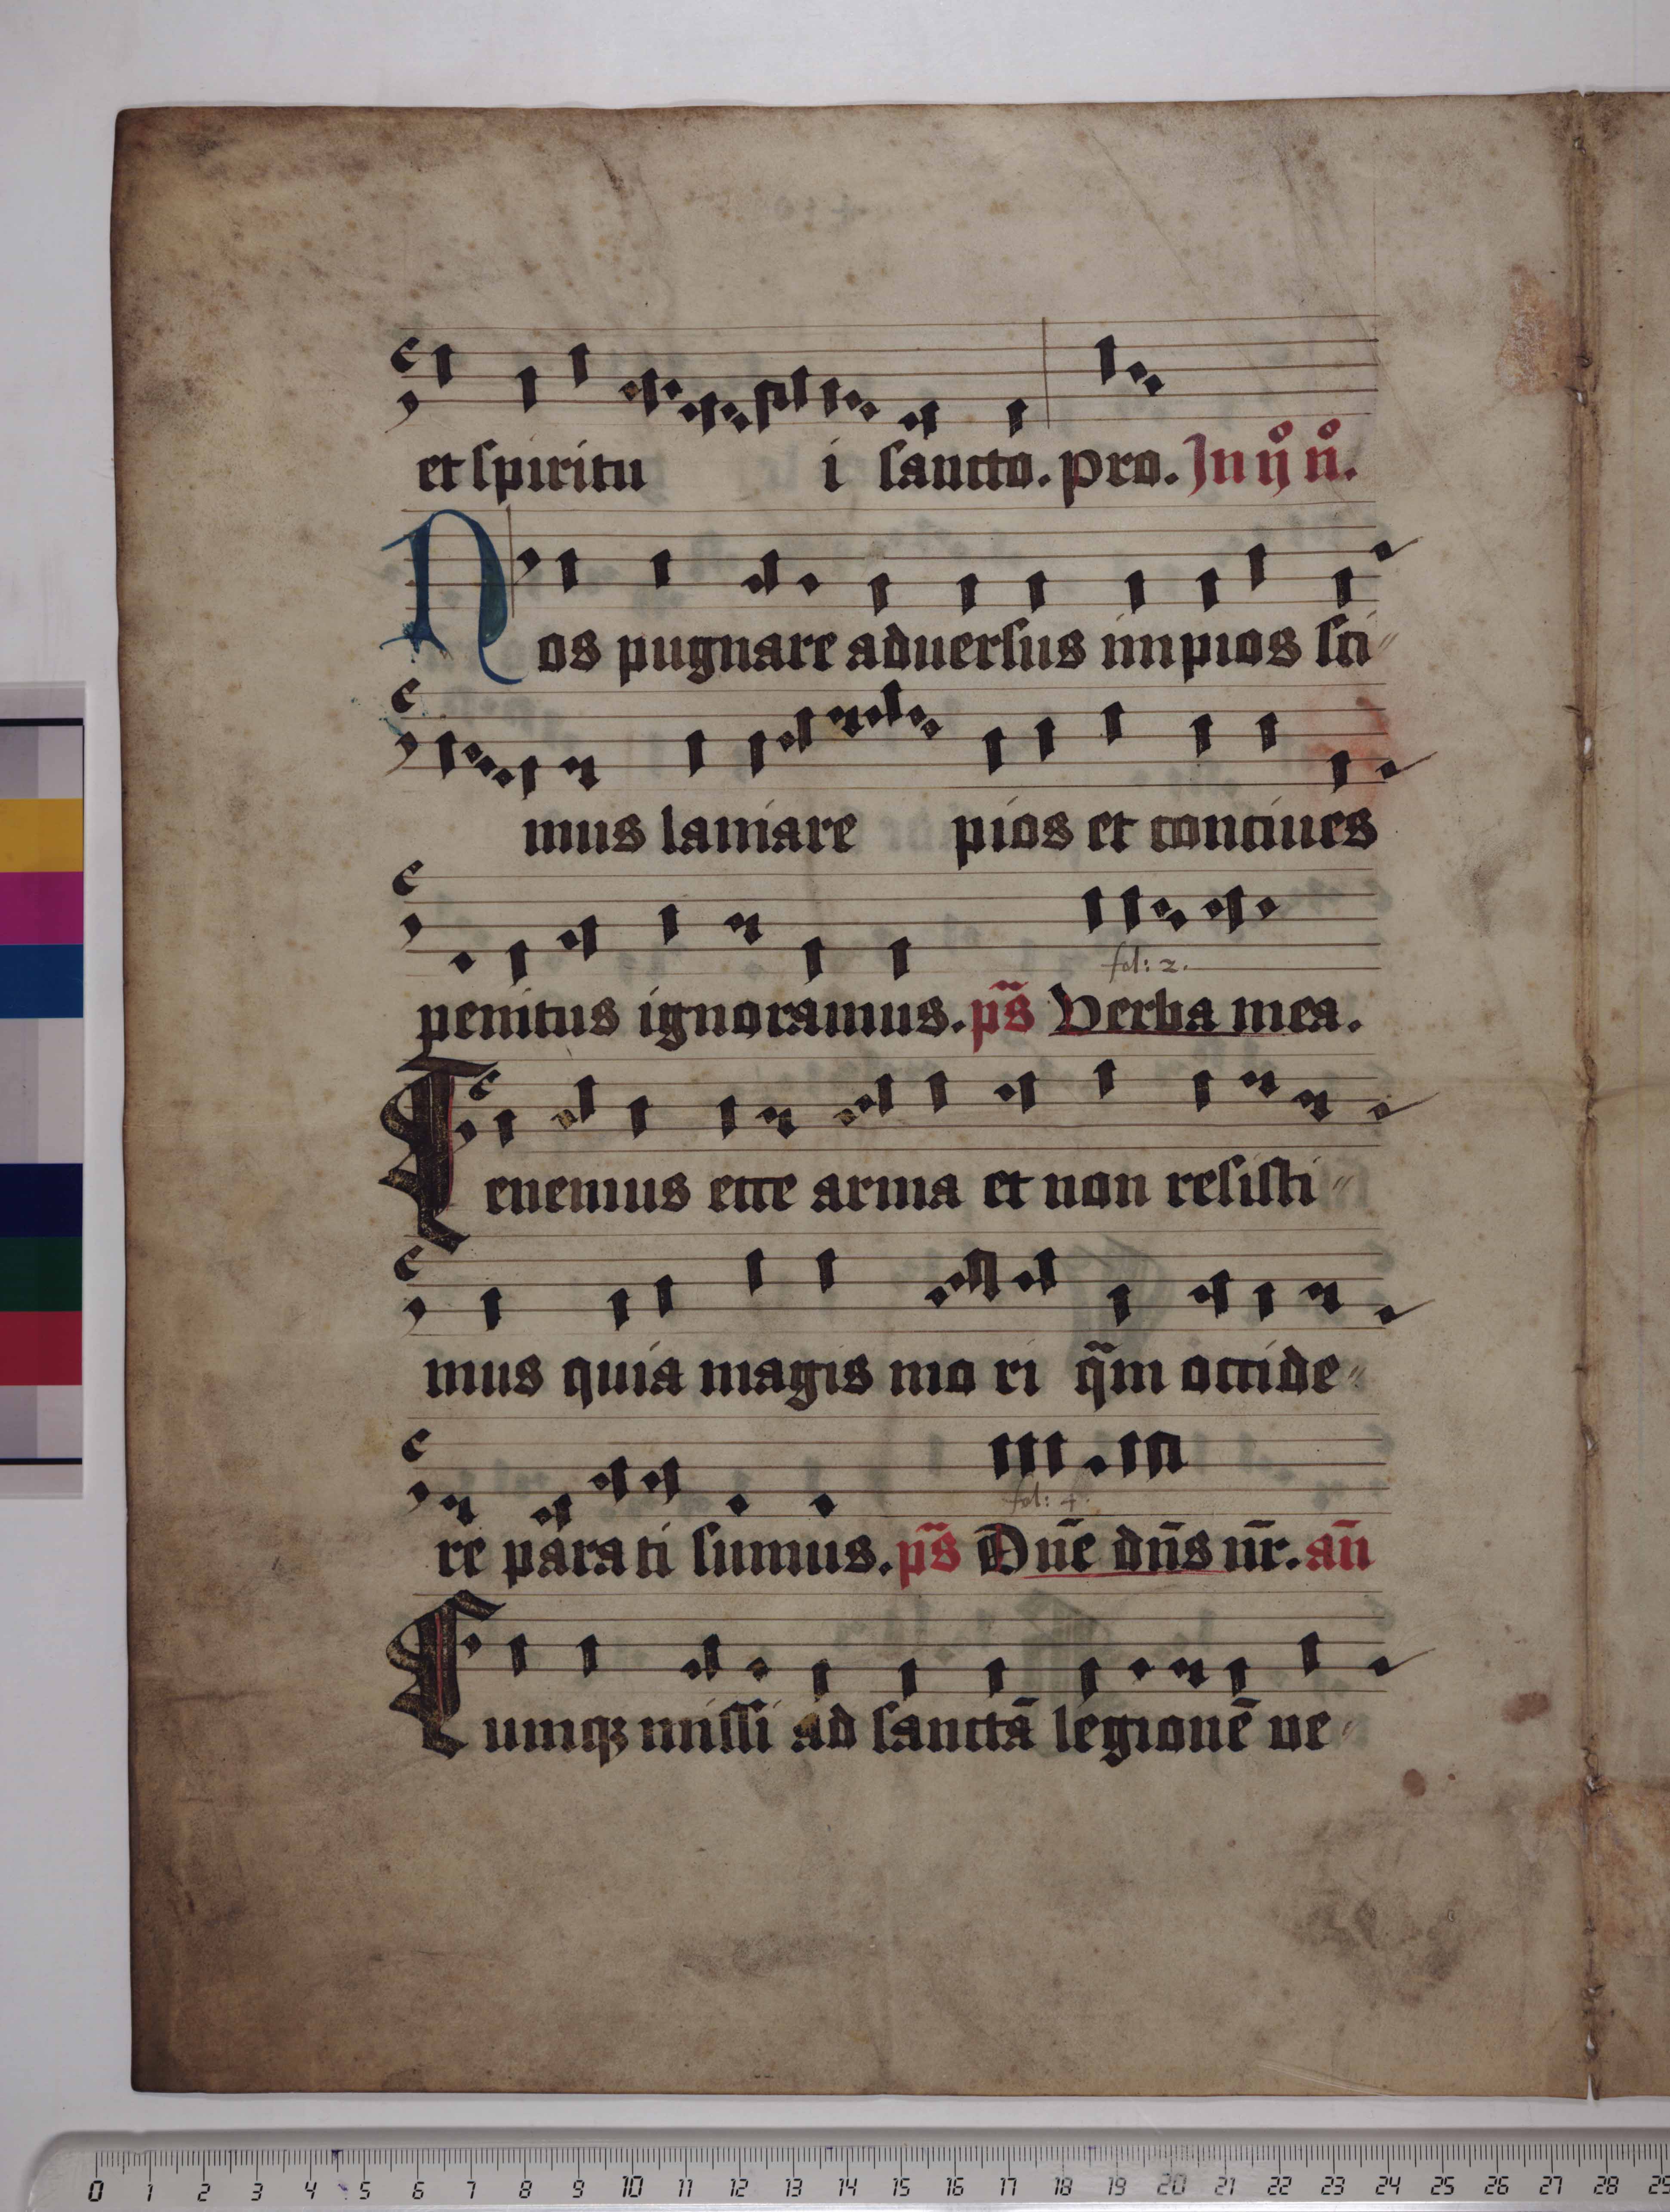 et spiritu i sancto. pro. Jn ij n̊.
Nos pugnare aduersus impios sci
fol: 2.
mus laniare pios et conciues
penitus ignoramus. ps̄ Verba mea.
Tenemus ecce arma et non resisti
mus quia magis mo ri q̄m occide
fol: 4.
re para ti sumus. ps̄ Dn̄e dn̄s nr̄. an̄
Cumqꝫ missi ad sanctā legionē ue
0 1 2 3 4 5 6 7 8 9 10 11 12 13 14 15 16 17 18 19 20 21 22 23 24 25 26 27 28 29